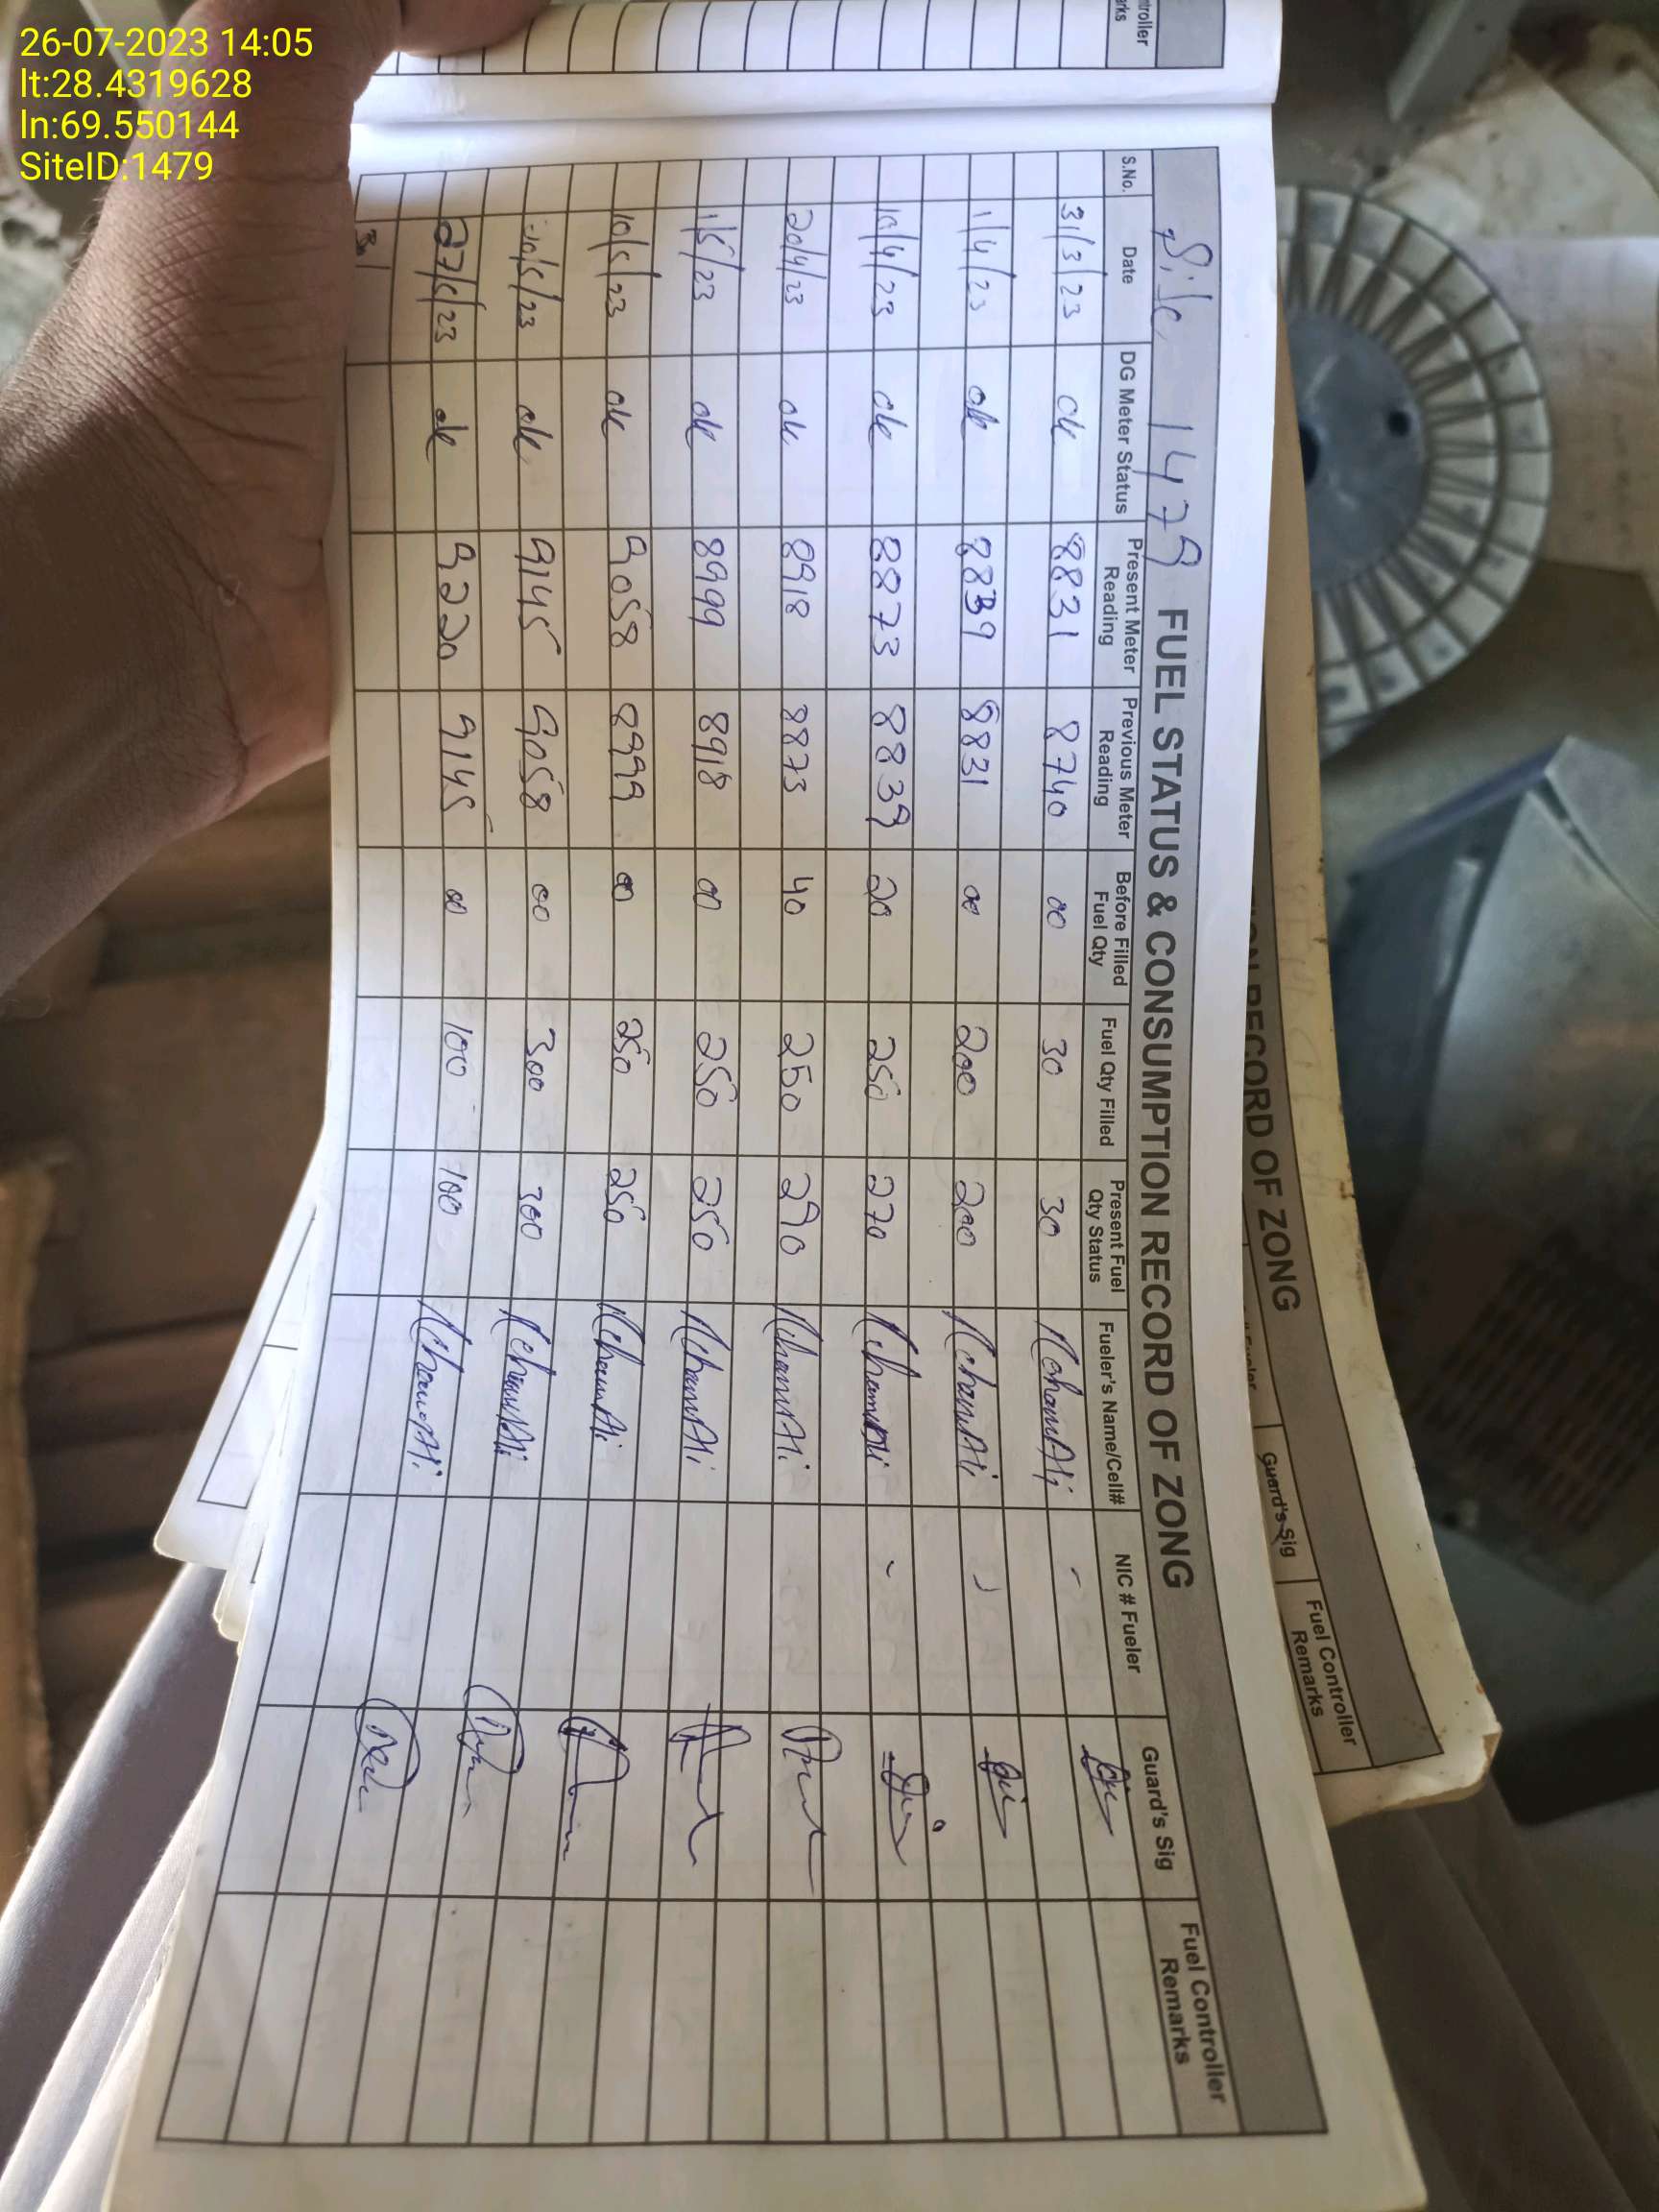 26-07-2023 14:05
lt:28.4319628
ln:69.550144
SiteID:1479
troller
rks
Site 1479 FUEL STATUS & CONSUMPTION RECORD OF ZONG
S.No. Date DG Meter Status Present Meter Reading Previous Meter Reading Before Filled Fuel Qty Fuel Qty Filled Present Fuel Qty Status Fueler's Name/Cell# NIC # Fueler Guard's Sig Fuel Controller Remarks
31/3/23 ok 8831 8740 00 30 30
1/4/23 ok 8839 8831 00 200 200
10/4/23 ok 8873 8839 20 250 270
20/4/23 ok 8918 8873 40 250 290
1/5/23 ok 8999 8918 00 250 250
10/5/23 ok 9058 8999 00 250 250
20/5/23 ok 9145 9058 00 300 300
27/5/23 ok 9220 9145 00 100 100
ON RECORD OF ZONG
Guard's Sig Fuel Controller Remarks